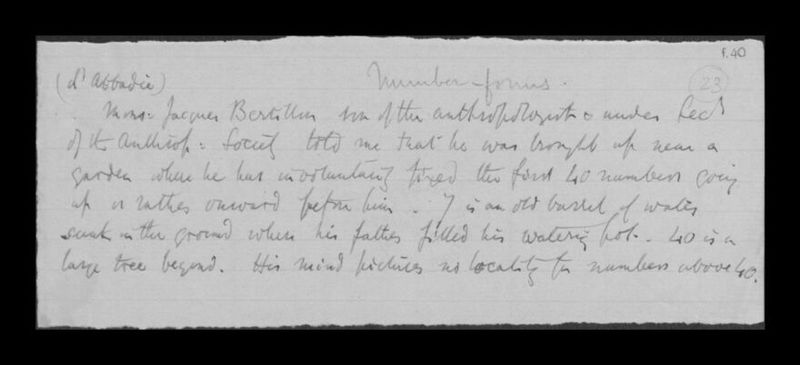 f.40
(d'Abbadie) Number-forms. 23
Mons: Jacques Bertillon son of the anthropologist & under Secy
of the Anthrop: Society told me that he was brought up near a
garden where he has involuntarily fixed the first 40 numbers going
up or rather onward before him. 7 is an old barrel of water
sunk in the ground where his father filled his watering pot. 40 is a
large tree beyond. His mind pictures no locality for numbers above 40.